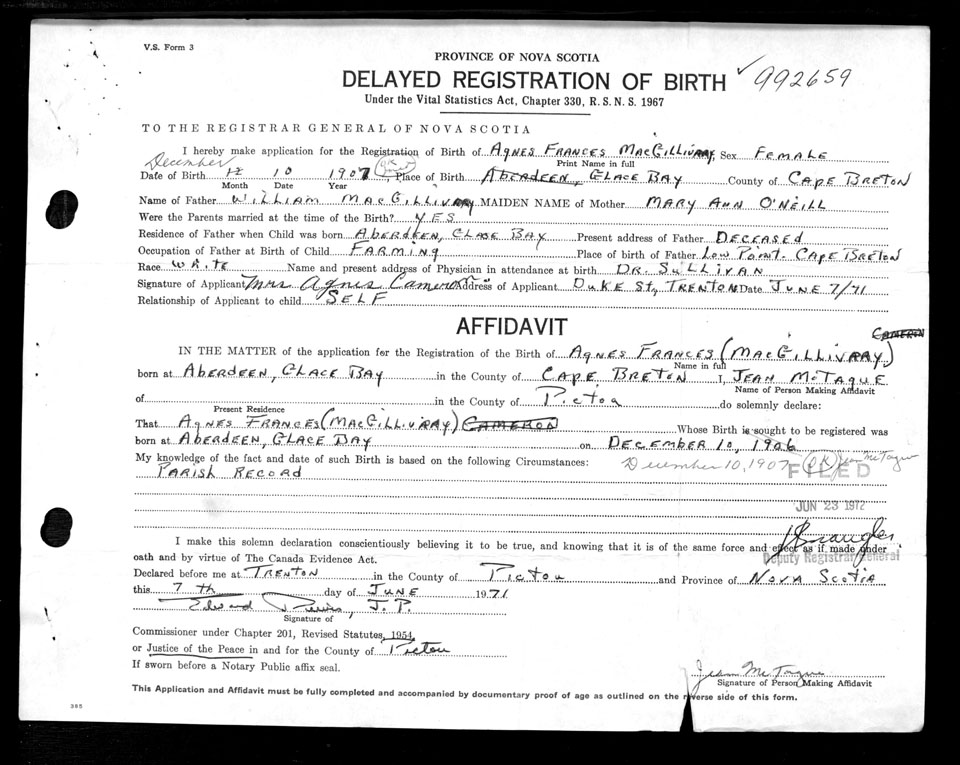 V.S. Form 3
PROVINCE OF NOVA SCOTIA
DELAYED REGISTRATION OF BIRTH ✓ 992659
Under the Vital Statistics Act, Chapter 330, R.S.N.S. 1967
TO THE REGISTRAR GENERAL OF NOVA SCOTIA
I hereby make application for the Registration of Birth of Agnes Frances MacGillivray, Sex Female
Print Name in full
December
Date of Birth 12 10 1907, Place of Birth Aberdeen, Glace Bay County of Cape Breton
Month Date Year
Name of Father William MacGillivray MAIDEN NAME of Mother Mary Ann O'Neill
Were the Parents married at the time of the Birth? Yes
Residence of Father when Child was born Aberdeen, Glace Bay Present address of Father Deceased
Occupation of Father at Birth of Child Farming Place of birth of Father Low Point. Cape Breton
Race White Name and present address of Physician in attendance at birth Dr. Sullivan
Signature of Applicant Mrs Agnes Cameron Address of Applicant Duke St, Trenton Date June 7/71
Relationship of Applicant to child Self
AFFIDAVIT
Cameron
IN THE MATTER of the application for the Registration of the Birth of Agnes Frances (MacGillivray)
Name in full
born at Aberdeen, Glace Bay in the County of Cape Breton I, Jean McTague
Name of Person Making Affidavit
of in the County of Pictou do solemnly declare:
Present Residence
That Agnes Frances (MacGillivray) Cameron Whose Birth is sought to be registered was
born at Aberdeen, Glace Bay on December 10, 1906
My knowledge of the fact and date of such Birth is based on the following Circumstances: December 10, 1907 OK Jean McTague
Parish Record FILED
JUN 23 1972
I make this solemn declaration conscientiously believing it to be true, and knowing that it is of the same force and effect as if made under
oath and by virtue of The Canada Evidence Act. Deputy Registrar General
Declared before me at Trenton in the County of Pictou and Province of Nova Scotia
this 7th day of June 1971
Edward J.P.
Signature of
Commissioner under Chapter 201, Revised Statutes, 1954
or Justice of the Peace in and for the County of Pictou
If sworn before a Notary Public affix seal.
Jean McTague
Signature of Person Making Affidavit
This Application and Affidavit must be fully completed and accompanied by documentary proof of age as outlined on the reverse side of this form.